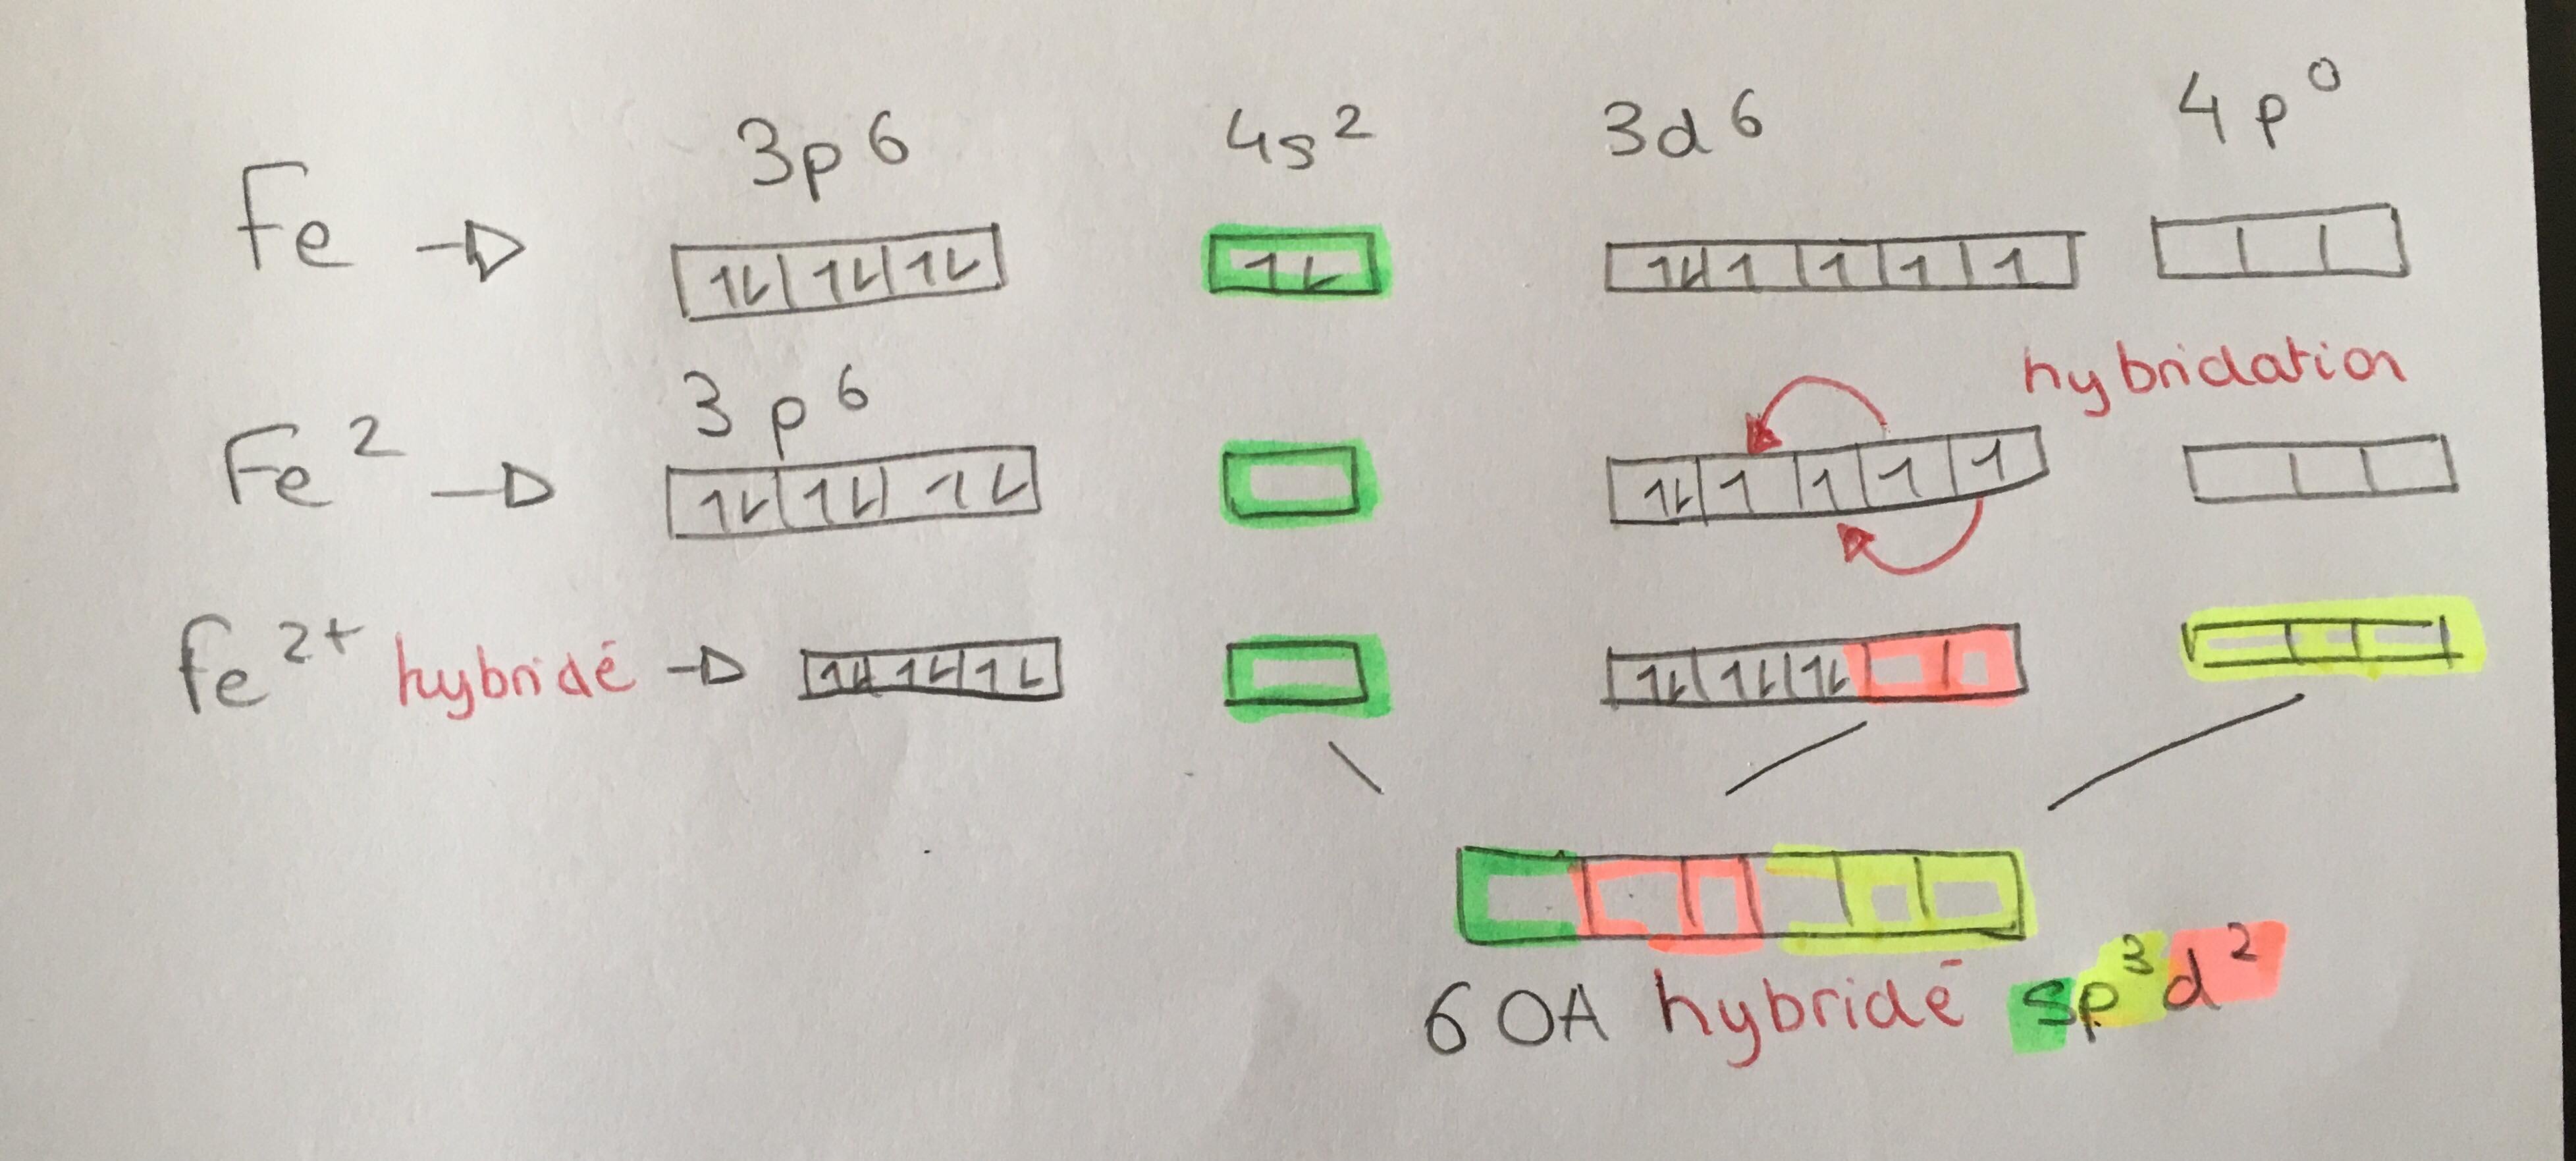 3p6 4s2 3d6 4p0
Fe → 1↓ 1↓ 1↓ 1↓ 1↓ 1 1 1 1
3p6 hybridation
Fe2 → 1↓ 1↓ 1↓ 1↓ 1 1 1 1
Fe2+ hybridé → 1↓ 1↓ 1↓ 1↓ 1↓ 1↓
6 OA hybridé sp3d2